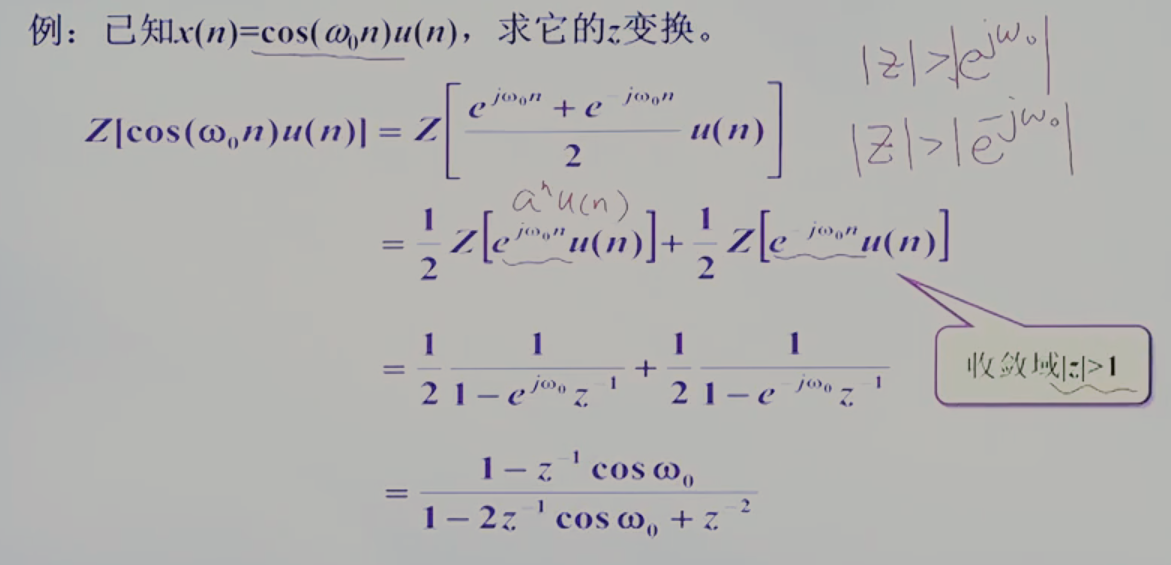 例：已知x(n)=cos(ω₀n)u(n)，求它的z变换。
|z|>|e^{jω₀}|
Z[cos(ω₀n)u(n)] = Z[(e^{jω₀n} + e^{-jω₀n})/2 u(n)]
|z|>|e^{-jω₀}|
aⁿu(n)
= 1/2 Z[e^{jω₀n}u(n)] + 1/2 Z[e^{-jω₀n}u(n)]
= 1/2 1/(1 - e^{jω₀}z^{-1}) + 1/2 1/(1 - e^{-jω₀}z^{-1})
收敛域|z|>1
= (1 - z^{-1}cosω₀)/(1 - 2z^{-1}cosω₀ + z^{-2})